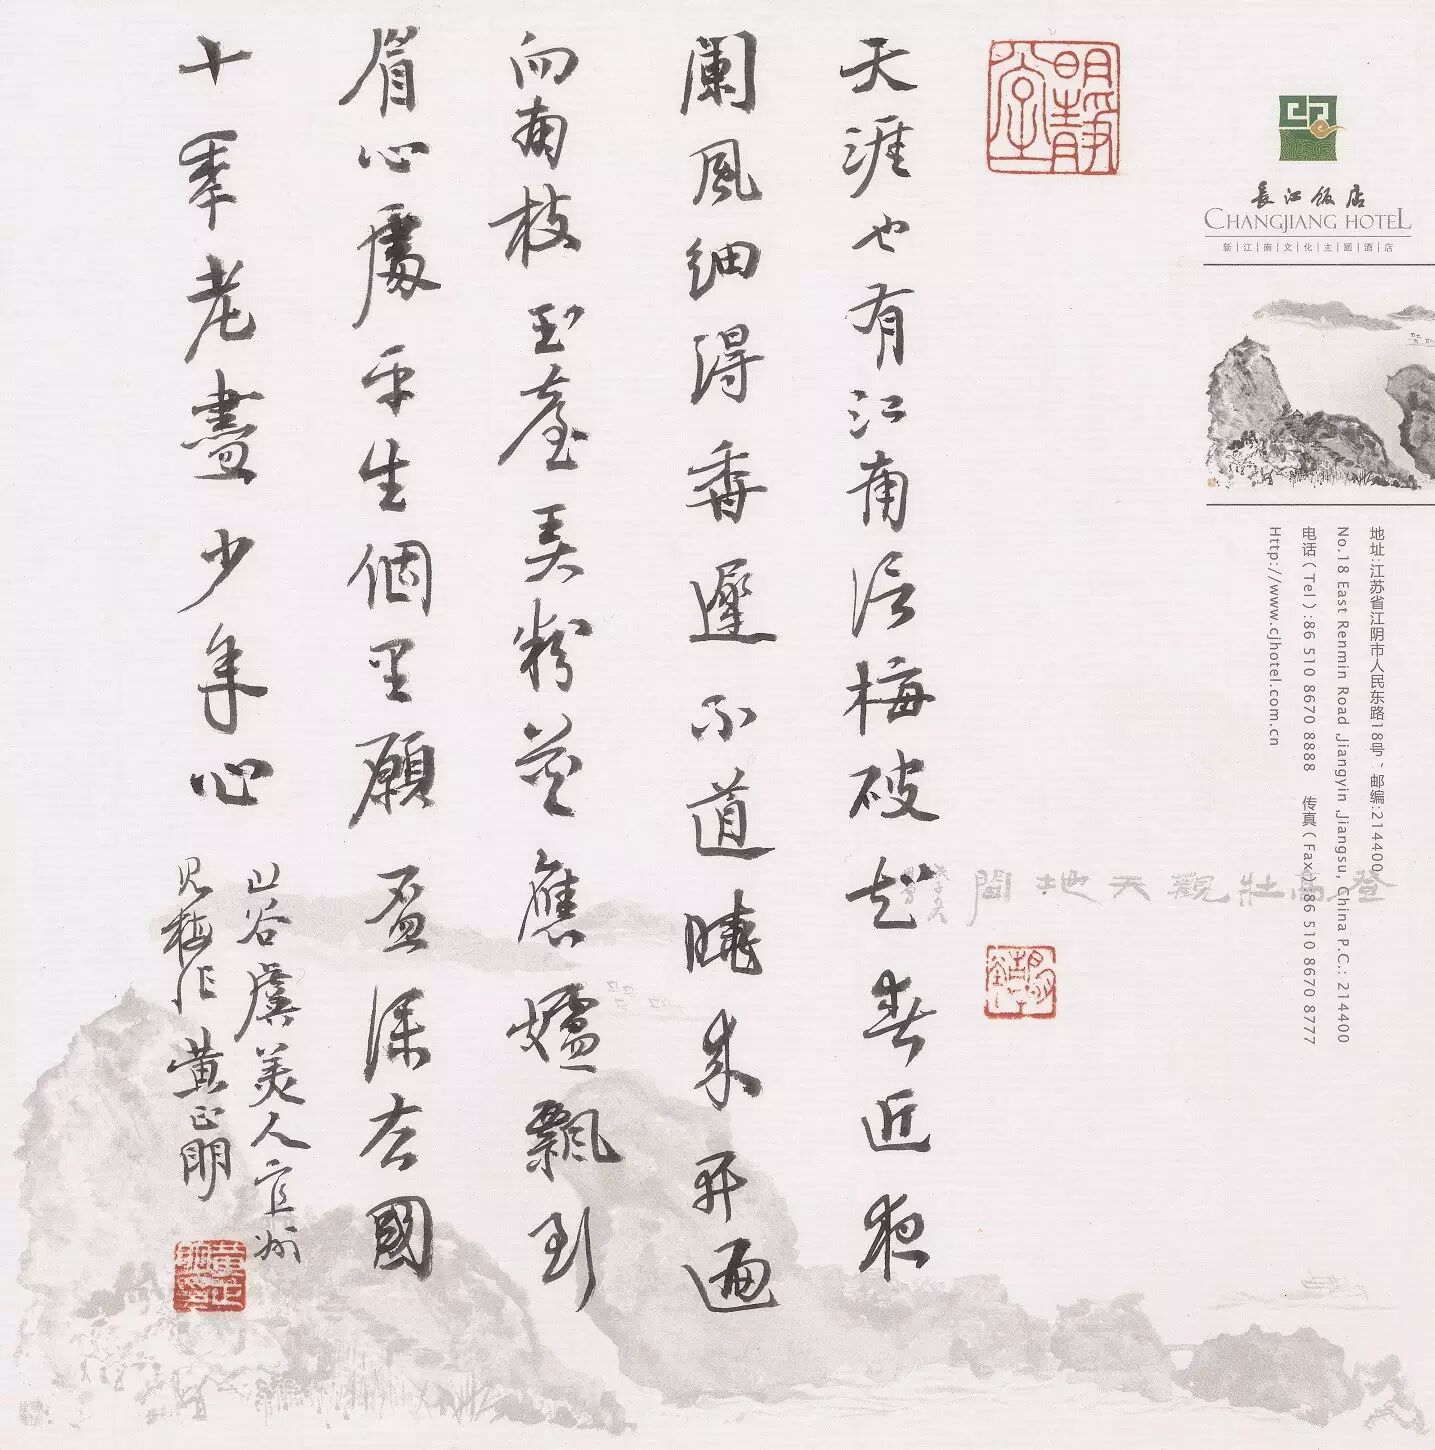 長江飯店
CHANGJIANG HOTEL
新江南文化主题酒店
地址:江苏省江阴市人民东路18号、邮编:214400
No.18 East Renmin Road ,Jiangyin ,Jiangsu, China P.C.: 214400
电话(Tel):86 510 8670 8888 传真(Fax):86 510 8670 8777
Http://www.cjhotel.com.cn
登高壯觀天地間
天涯也有江南信梅破知春近夜
闌風細得香遲不道曉來開遍
向南枝玉臺弄粉花應飄到
眉心處平生個里願盃深去國
十年老盡少年心
山谷虞美人宜州
見梅作 黄正明